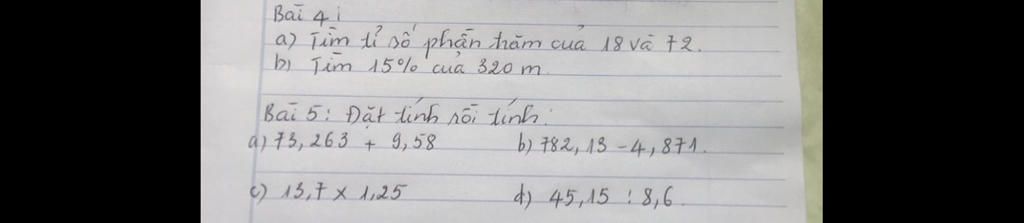 Bài 4:
a) Tìm tỉ số phần trăm của 18 và 72.
b) Tìm 15% của 320 m.
Bài 5: Đặt tính rồi tính:
a) 73,263 + 9,58 b) 782,13 - 4,871.
c) 13,7 x 1,25 d) 45,15 : 8,6.